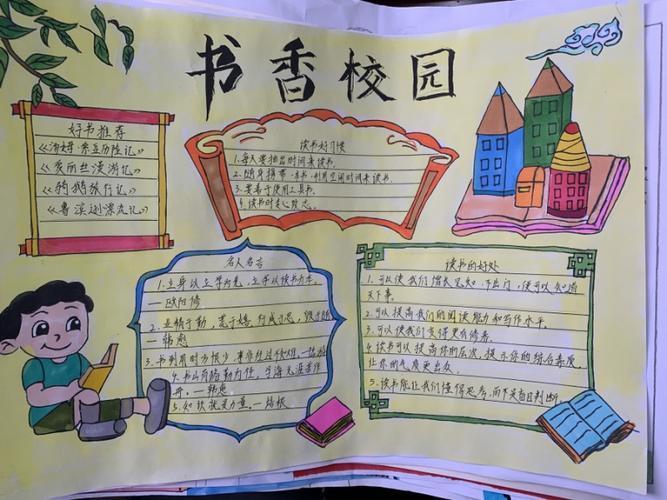 书香校园
好书推荐
《汤姆·索亚历险记》
《爱丽丝漫游记》
《骑鹅旅行记》
《鲁滨逊漂流记》
读书好习惯
1.每天要抽出时间来读书.
2.随身携带一本书.利用空闲时间来读书.
3.要善于使用工具书.
4.读书时专心致志.
名人名言
1.立身以立学为先,立学以读书为本.
—欧阳修
2.业精于勤,荒于嬉,行成于思,毁于随
—韩愈
3.书到用时方恨少,事非经过不知难.—陆游
4.书山有路勤为径,学海无涯苦作
舟.—韩愈
5.知识就是力量.—培根
读书的好处
1.可以使我们增长见识.不出门,便可以知道
天下事.
2.可以提高我们的阅读能力和写作水平.
3.可以使我们变得更有修养.
4.读书可以提高你的层次,提示你的综合素质,
让你的气质更出众.
5.读书能让我们懂得思考,而不是盲目判断.